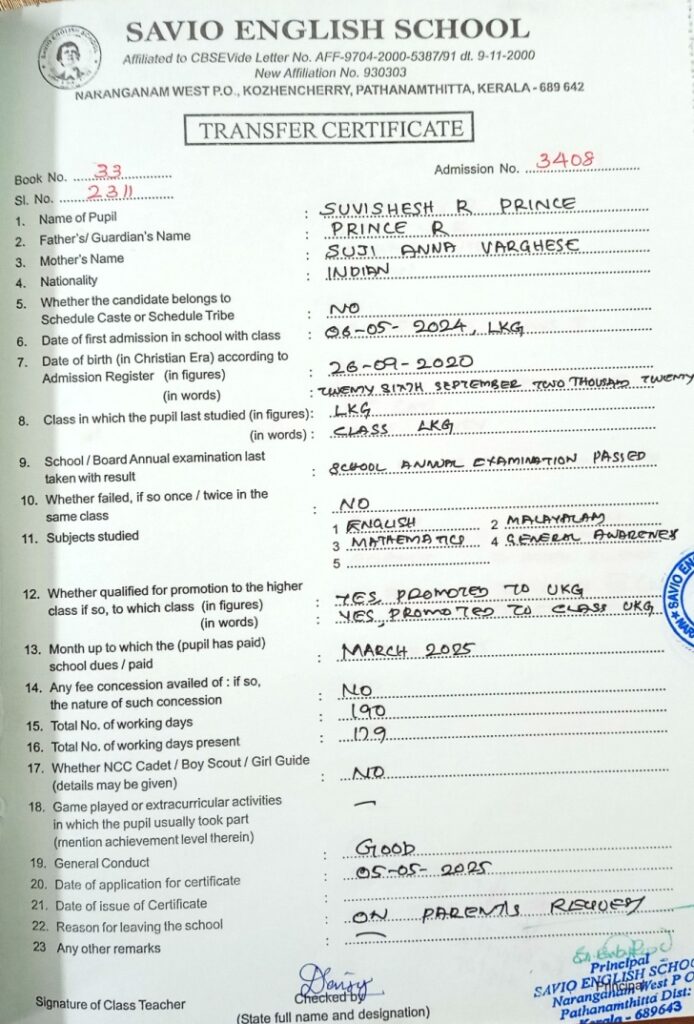 SAVIO ENGLISH SCHOOL
SAVIO ENGLISH SCHOOL
Affiliated to CBSEVide Letter No. AFF-9704-2000-5387/91 dt. 9-11-2000
New Affiliation No. 930303
NARANGANAM WEST P.O., KOZHENCHERRY, PATHANAMTHITTA, KERALA - 689 642
TRANSFER CERTIFICATE
Book No. 33 Admission No. 3408
Sl. No. 2311
1. Name of Pupil : SUVISHESH R PRINCE
2. Father's/ Guardian's Name : PRINCE R
3. Mother's Name : SUJI ANNA VARGHESE
4. Nationality : INDIAN
5. Whether the candidate belongs to
Schedule Caste or Schedule Tribe : NO
6. Date of first admission in school with class : 06-05-2024, LKG
7. Date of birth (in Christian Era) according to
Admission Register (in figures) : 26-09-2020
(in words) : TWENTY SIXTH SEPTEMBER TWO THOUSAND TWENTY
8. Class in which the pupil last studied (in figures): LKG
(in words) : CLASS LKG
9. School / Board Annual examination last
taken with result : SCHOOL ANNUAL EXAMINATION PASSED
10. Whether failed, if so once / twice in the
same class : NO
11. Subjects studied 1 ENGLISH 2 MALAYALAM
3 MATHEMATICS 4 GENERAL AWARENES
5
12. Whether qualified for promotion to the higher
class if so, to which class (in figures) : YES, PROMOTED TO UKG
(in words) : YES, PROMOTED TO CLASS UKG
SAVIO EN
NAR
13. Month up to which the (pupil has paid)
school dues / paid : MARCH 2025
14. Any fee concession availed of : if so,
the nature of such concession : NO
15. Total No. of working days : 190
16. Total No. of working days present : 179
17. Whether NCC Cadet / Boy Scout / Girl Guide
(details may be given) : NO
18. Game played or extracurricular activities
in which the pupil usually took part
(mention achievement level therein) —
19. General Conduct : GOOD
20. Date of application for certificate : 05-05-2025
21. Date of issue of Certificate :
22. Reason for leaving the school : ON PARENTS REQUEST
23 Any other remarks : —
Signature of Class Teacher
Checked by
(State full name and designation)
Principal
Principal
SAVIO ENGLISH SCHOO
Naranganam West P O
Pathanamthitta Dist:
Kerala - 689643